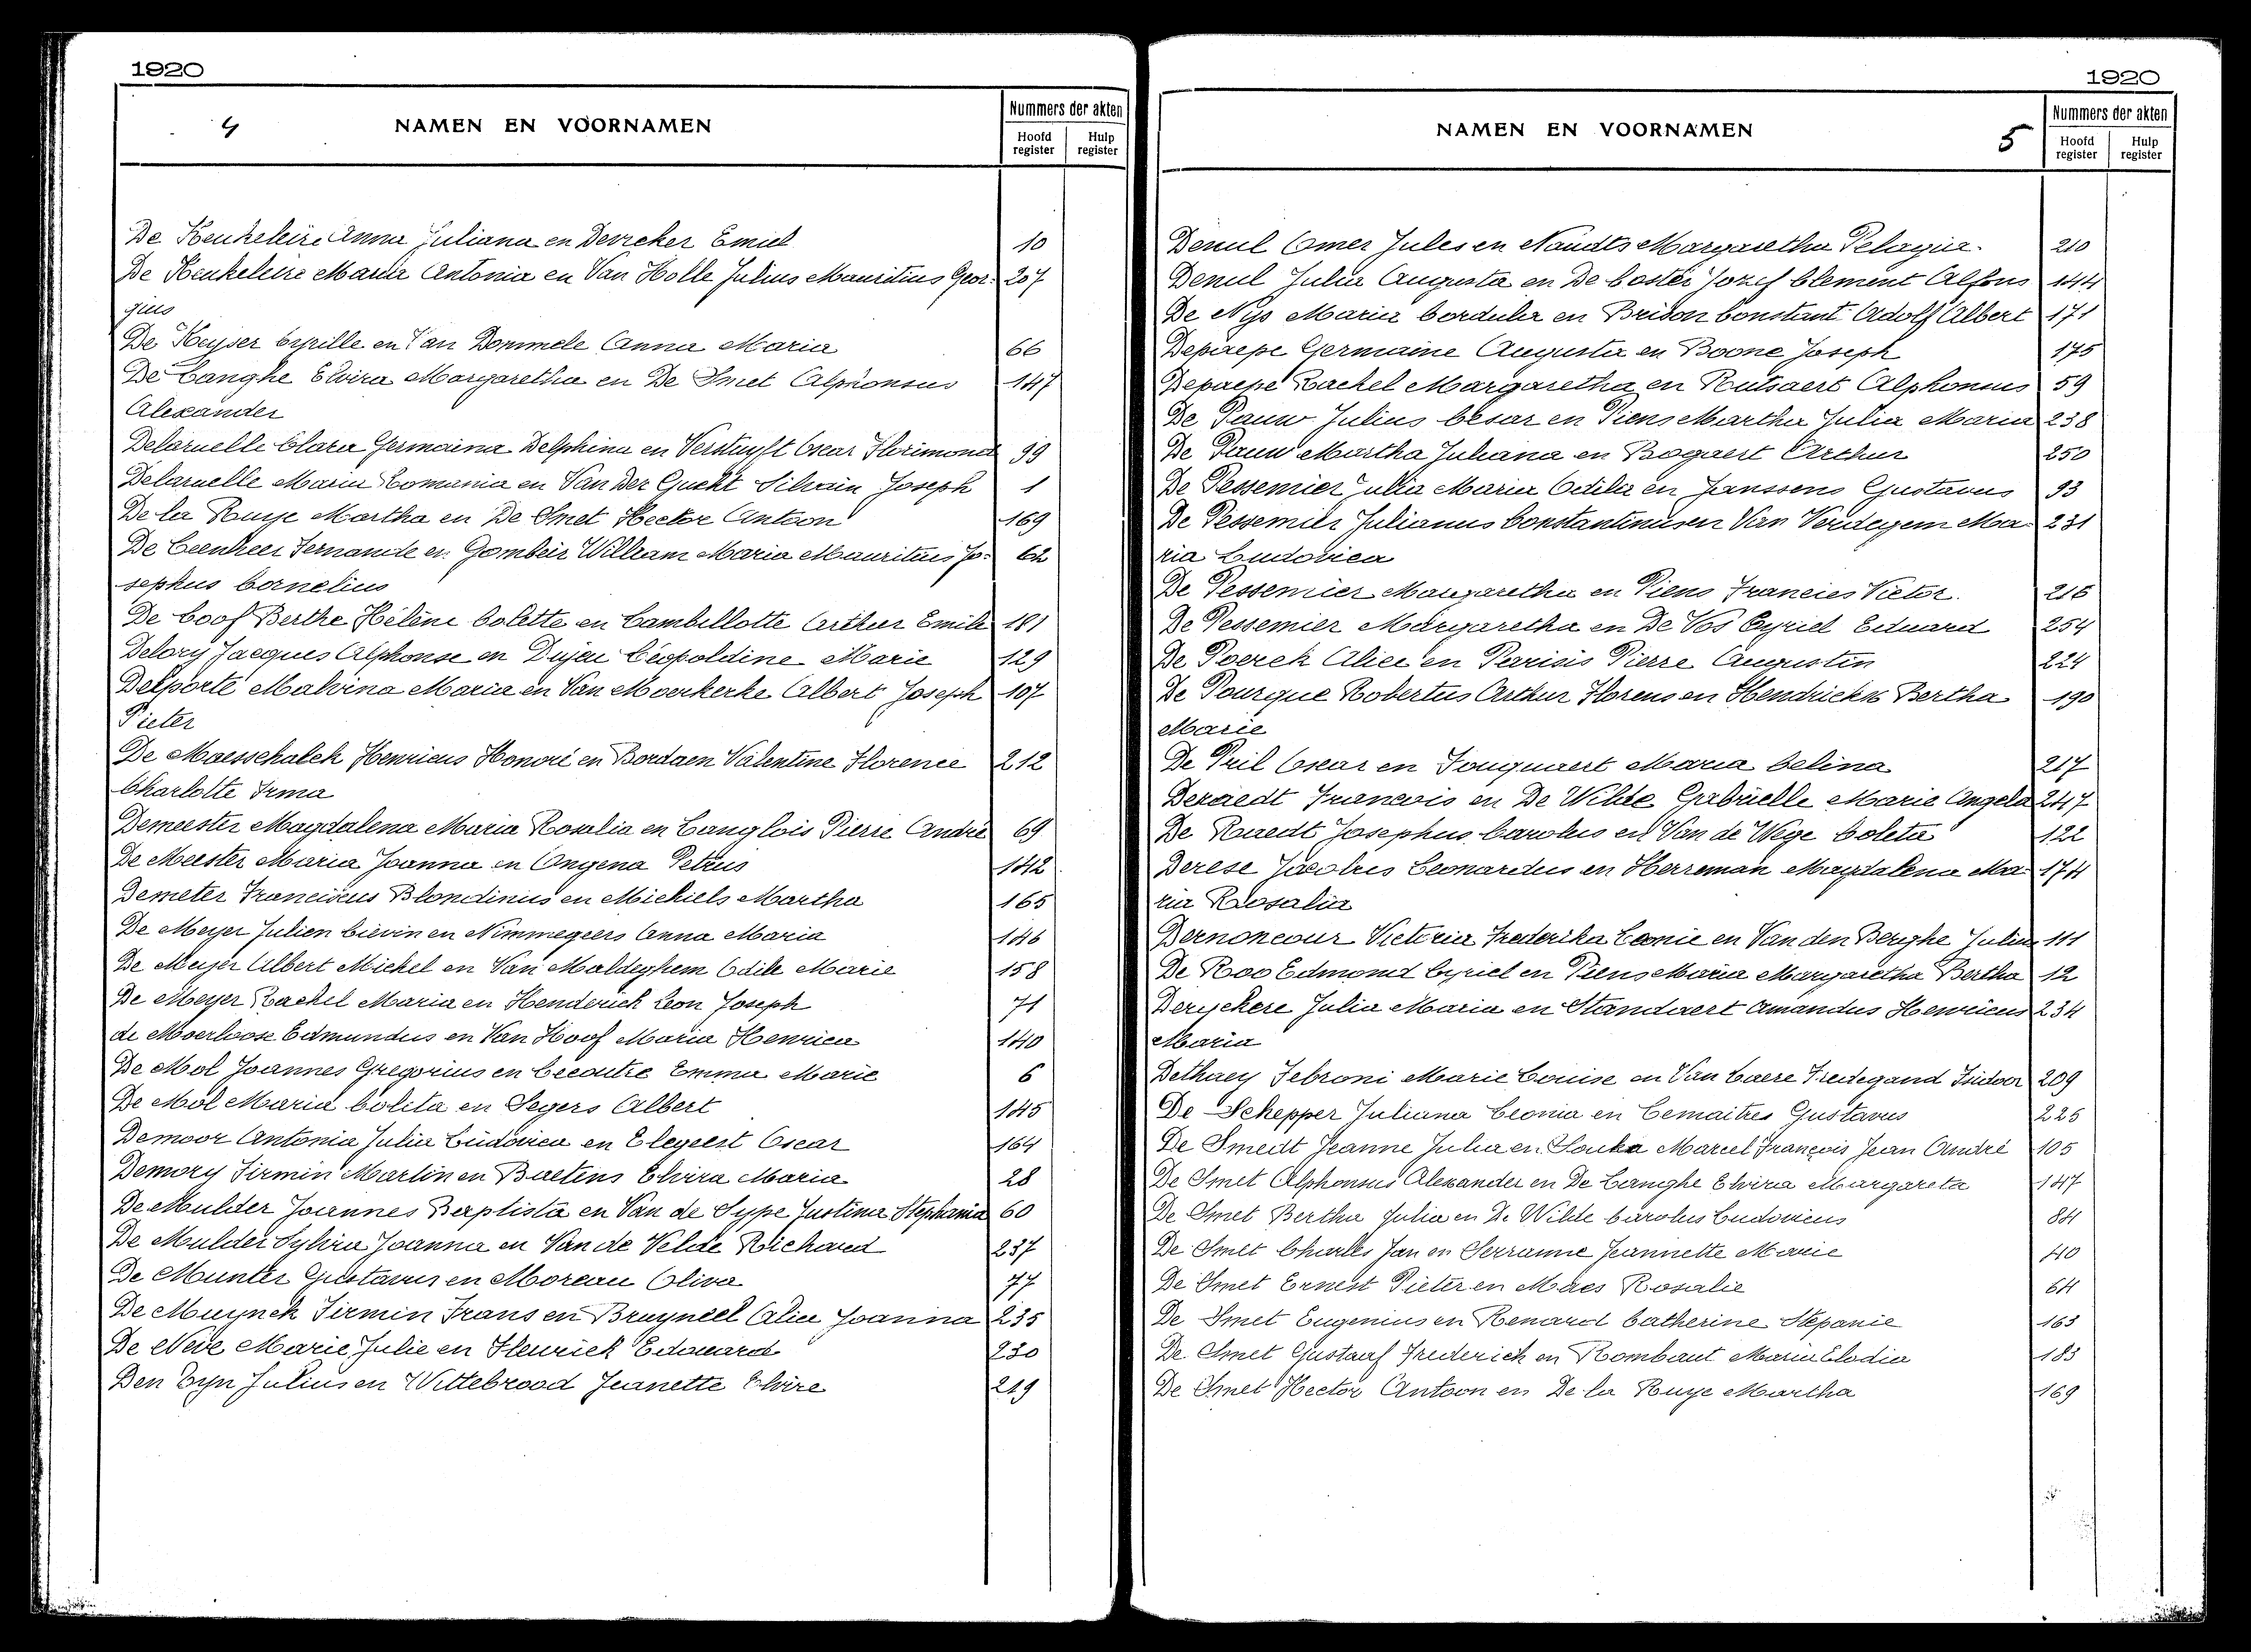 1920
4 NAMEN EN VOORNAMEN
Nummers der akten
Hoofd register Hulp register
De Keukeleire Anna Juliana en Devreker Emiel 10
De Keukeleire Maria Antonia en Van Holle Julius Mauritius Geor- 207
gius
De Keyser Cyrille en Van Dommele Anna Maria 66
De Langhe Elvira Margaretha en De Smet Alphonsus 147
Alexander
Delaruelle Clara Germaina Delphina en Verstuyft Oscar Florimond 99
Delaruelle Maria Romania en Van Der Gucht Silvain Joseph 1
De la Ruye Martha en De Smet Hector Antoon 169
De Leenheer Fernande en Gombeir William Maria Mauritius Jo- 62
sephus Cornelius
De Loof Berthe Hélène Colette en Cambillotte Arthur Emile 181
Delory Jacques Alphonse en Dujeu Léopoldine Marie 129
Delporte Malvina Maria en Van Moerkerke Albert Joseph 107
Pieter
De Maesschalck Henricus Honoré en Bordaen Valentine Florence 212
Charlotte Irma
Demeester Magdalena Maria Rosalia en Langlois Pierre André 69
De Meester Maria Joanna en Ongena Petrus 142
Demeter Franciscus Blondinus en Michiels Martha 165
De Meyer Julien Liévin en Nimmegeers Anna Maria 146
De Meyer Albert Michel en Van Maldeghem Odile Marie 158
De Meyer Rachel Maria en Henderick Leon Joseph 71
de Moerloose Edmundus en Van Hoof Maria Henrica 140
De Mol Joannes Gregorius en Lecoutre Emma Marie 6
De Mol Maria Colita en Segers Albert 145
Demoor Antonia Julia Ludovica en Elegeert Oscar 164
Demory Firmin Martin en Baetens Elvira Maria 28
De Mulder Joannes Baptista en Van de Sype Justina Stephania 60
De Mulder Sylvia Joanna en Van de Velde Richard 237
De Munter Gustavus en Moreau Oliva 77
De Muynck Firmin Frans en Bruyneel Alice Joanna 235
De Neve Marie Julie en Heurick Edouard 230
Den Tyn Julius en Wittebrood Jeanette Elvire 219
1920
NAMEN EN VOORNAMEN 5
Nummers der akten
Hoofd register Hulp register
Denul Omer Jules en Naudts Margaretha Pelagia 210
Denul Julia Augusta en De Coster Jozef Clement Alfons 144
De Nys Maria Cordula en Brison Constant Adolf Albert 171
Depaepe Germaine Augusta en Boone Joseph 175
Depaepe Rachel Margaretha en Rutsaert Alphonsus 59
De Pauw Julius Cesar en Piens Martha Julia Maria 238
De Pauw Martha Juliana en Bogaert Arthur 250
De Pessemier Julia Maria Odila en Janssens Gustavus 93
De Pessemier Julianus Constantinus en Van Verdegem Ma- 231
ria Ludovica
De Pessemier Margaretha en Piens Francies Victor 216
De Pessemier Margaretha en De Vos Cyriel Eduard 254
De Poerck Alice en Parisis Pierre Augustin 224
De Pourque Robertus Arthur Florens en Hendrickx Bertha 190
Marie
De Pril Oscar en Fouquaert Maria Celina 217
Deraedt Francois en De Wilde Gabrielle Marie Angela 247
De Raedt Josephus Carolus en Van de Wege Coleta 122
Derese Jacobus Leonardus en Herreman Magdalena Ma- 174
ria Rosalia
Dernoncour Victoria Frederika Leonie en Van den Berghe Julius 111
De Roo Edmond Cyriel en Piens Maria Margaretha Bertha 12
Deryckere Julia Maria en Standaert Amandus Henricus 234
Maria
Dethaey Febroni Marie Louise en Van Caere Fredegand Isidoor 209
De Schepper Juliana Leonia en Lemaitres Gustavus 225
De Smedt Jeanne Julia en Slouka Marcel François Jean André 105
De Smet Alphonsus Alexander en De Langhe Elvira Margareta 147
De Smet Bertha Julia en De Wilde Carolus Ludovicus 84
De Smet Charles Jan en Serranne Jeannette Marie 40
De Smet Ernest Pieter en Maes Rosalie 64
De Smet Eugenius en Renard Catherine Stepanie 163
De Smet Gustaaf Frederich en Rombaut Maria Elodia 183
De Smet Hector Antoon en De la Ruye Martha 169